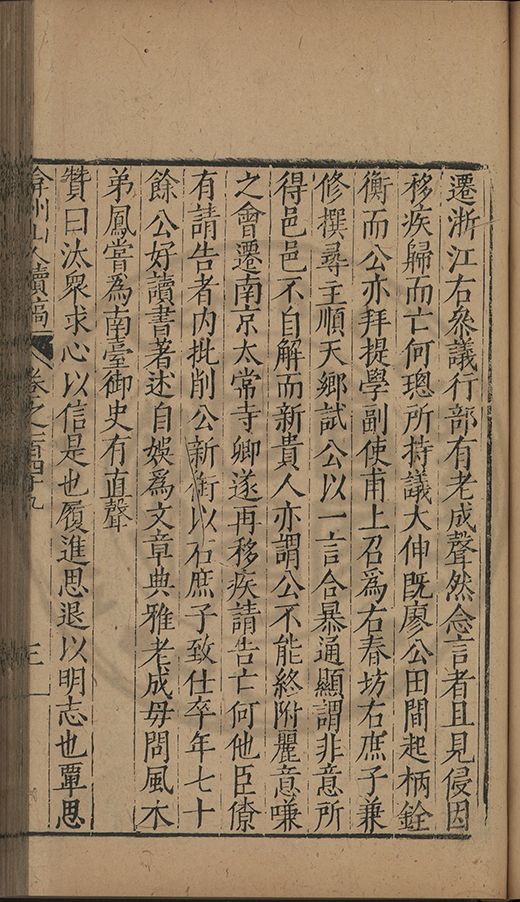 遷浙江右叅議行部有老成聲然念言者且見侵因
移疾歸而亡何璁所持議大伸既廖公田間起柄銓
衡而公亦拜提學副使甫上召爲右春坊右庶子兼
修撰尋主順天鄉試公以一言合暴通顯謂非意所
得邑邑不自解而新貴人亦謂公不能終附麗意嗛
之會遷南京太常寺卿遂再移疾請告亡何他臣僚
有請告者內批削公新銜以右庶子致仕卒年七十
餘公好讀書著述自娛爲文章典雅老成毋問風木
弟鳳嘗為南臺御史有直聲
贊曰汰衆求心以信是也履進思退以明志也覃思
弇州山人續稿 卷之一百四十九 三